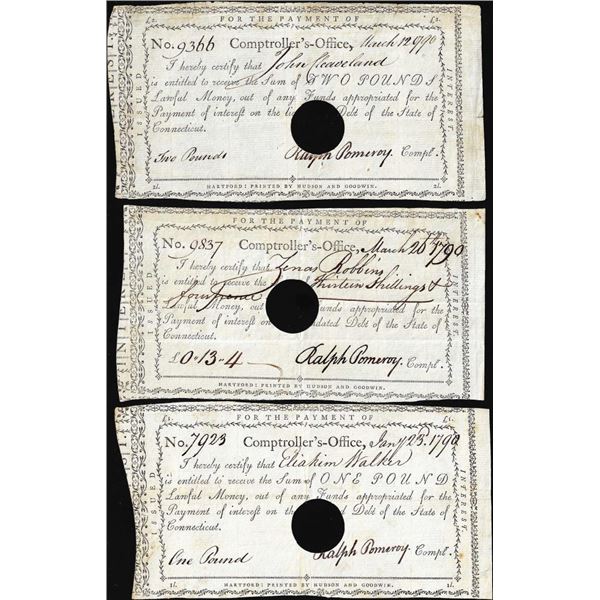 FOR THE PAYMENT OF
£2. £2.
No. 9366 Comptroller's-Office, March 12
I hereby certify that John Cleaveland
is entitled to receive the Sum of TWO POUNDS
Lawful Money, out of any Funds appropriated for the
Payment of interest on the Debt of the State of
Connecticut.
Two Pounds Ralph Pomeroy Compt.
ISSUED
INTEREST
2l. HARTFORD: PRINTED BY HUDSON AND GOODWIN. 2l.
FOR THE PAYMENT OF
No. 9837 Comptroller's-Office, March 1790
I hereby certify that Zenas Robbins
is entitled to receive the Thirteen Shillings &
four pence
Lawful Money, out of Funds appropriated for the
Payment of interest on dated Debt of the State of
Connecticut.
£0-13-4 Ralph Pomeroy Compt.
ISSUED
INTEREST
HARTFORD: PRINTED BY HUDSON AND GOODWIN.
FOR THE PAYMENT OF
£1.
No. 7923 Comptroller's-Office, Jany 25th. 1790
I hereby certify that Eliakim Walker
is entitled to receive the Sum of ONE POUND
Lawful Money, out of any Funds appropriated for the
Payment of interest on the Debt of the State of
Connecticut.
One Pound Ralph Pomeroy Compt.
ISSUED
INTEREST
1l. HARTFORD: PRINTED BY HUDSON AND GOODWIN. 1l.